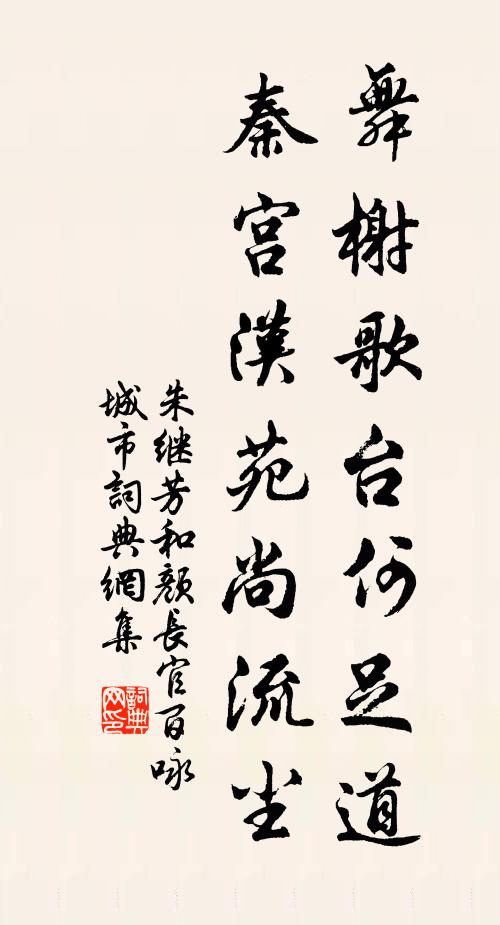 舞榭歌台何足道
秦宫漢苑尚流尘
朱继芳和顏長官百咏
城市詞典網集
詞典网印